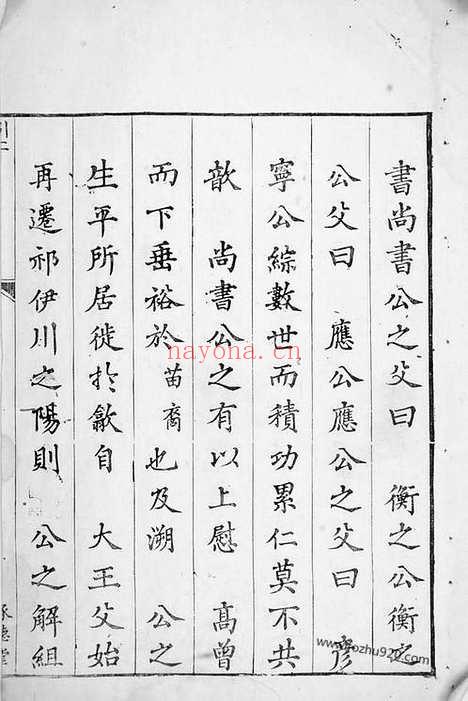 書尚書公之父曰　衡之公衡之
公父曰　應公應公之父曰　彦
寧公綜數世而積功累仁莫不共
歆　尚書公之有以上慰　高曾
而下垂裕於苗裔也及溯　公之
生平所居徙於歙自　大王父始
再遷祁伊川之陽則　公之解組
承德堂
nayona.cn
www.bozhu920.com